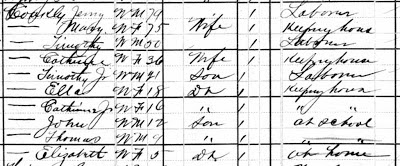 Coakly Jerry W M 74 1 Laborer
— Mary W F 75 Wife 1 Keeping house
— Timothy W M 50 1 Laborer
— Catherine W F 36 Wife 1 Keeping house
— Timothy J W M 21 Son 1 Laborer
— Ella W F 18 Da 1 Keeping house
— Catherine Jr W F 16 " 1 "
— John W M 12 Son 1 at school
— Thomas W M 9 " 1 "
— Elizabeth W F 5 Da 1 at home